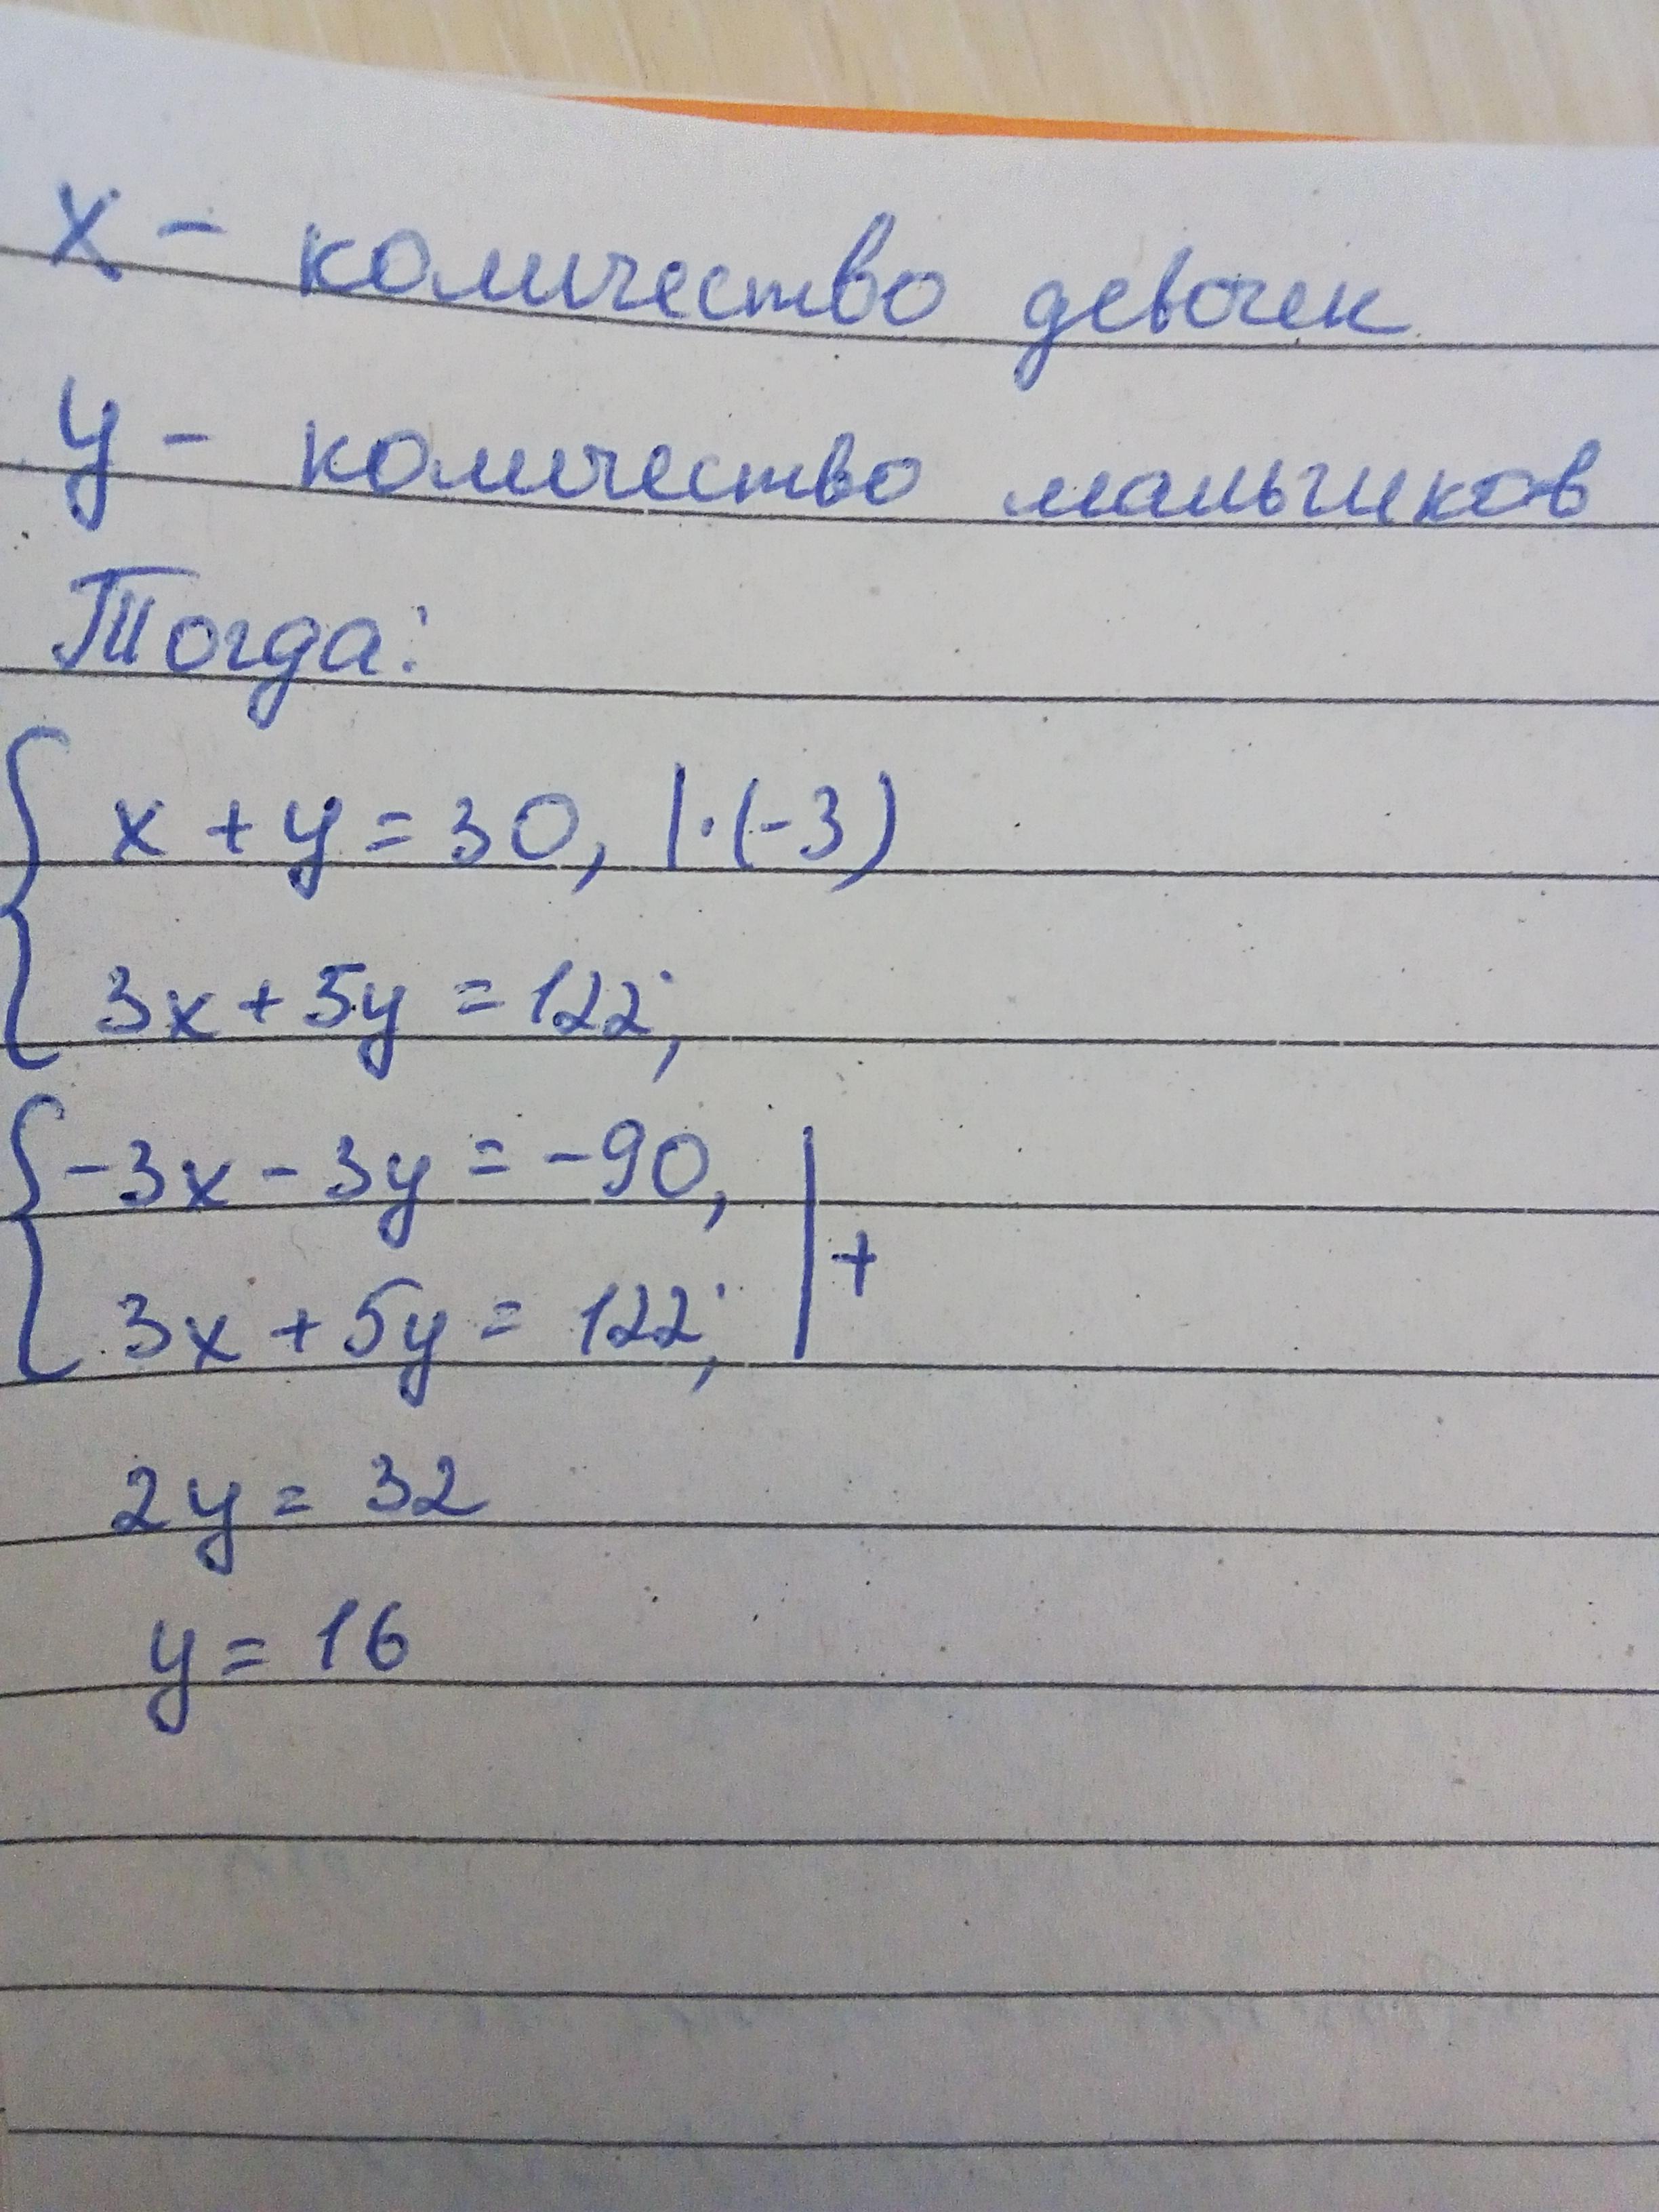 х - количество девочек
у - количество мальчиков
Тогда:
{ x + y = 30, | · (-3)
3x + 5y = 122;
{ -3x - 3y = -90,
3x + 5y = 122; | +
2y = 32
y = 16